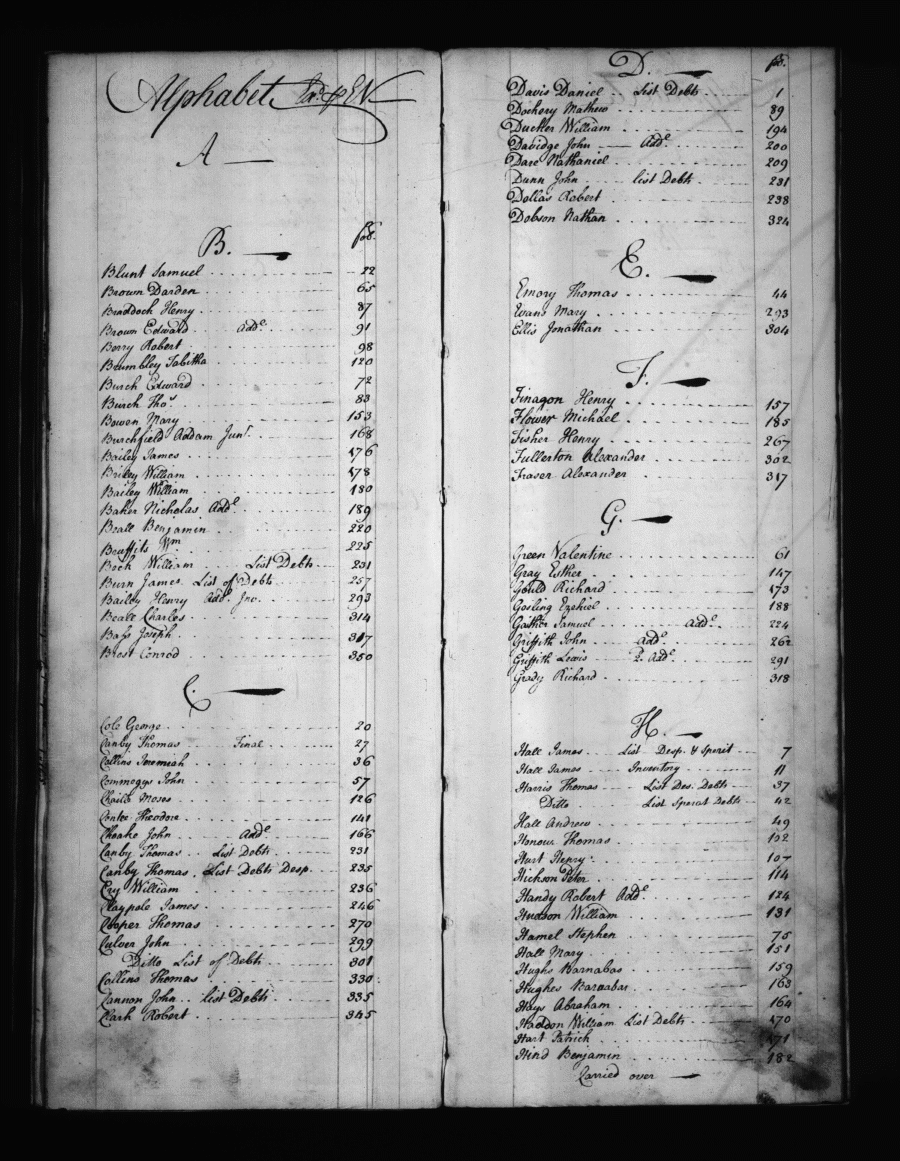 Alphabet
A
B. fol.
Blunt Samuel 22
Brown Darden 65
Braddock Henry 87
Brown Edward Add.l 91
Berry Robert 98
Brumbley Tabitha 120
Burch Edward 72
Burch Tho.s 83
Bowen Mary 153
Burchfield Addam Jun.r 168
Bailey James 176
Briley William 178
Bailey William 180
Baker Nicholas Add.l 189
Beall Benjamin 220
Bruffits Wm 225
Beck William List Debts 231
Burn James List of Debts 257
Bailey Henry Add.l Inv. 293
Beall Charles 314
Bass Joseph 317
Brost Conrod 350
C.
Cole George 20
Canby Thomas Final 27
Collins Jeremiah 36
Commegys John 57
Chaile Moses 126
Contee Theodore 141
Choake John Add.l 166
Canby Thomas List Debts 231
Canby Thomas. List Debts Desp. 235
Cry William 236
Claypole James 246
Cooper Thomas 270
Culver John 299
Ditto List of Debts 301
Collins Thomas 330
Cannon John List Debts 335
Clark Robert 345
D. fo.
Davis Daniel List Debts 1
Dockery Mathew 89
Duckter William 194
Davidge John Add.l 200
Dare Nathaniel 209
Dunn John list Debts 231
Dollas Robert 238
Dobson Nathan 324
E.
Emory Thomas 44
Evans Mary 293
Ellis Jonathan 304
F.
Finagon Henry 157
Flower Michael 185
Fisher Henry 267
Fullerton Alexander 302
Fraser Alexander 317
G.
Green Valentine 61
Gray Esther 147
Gould Richard 173
Gosling Ezekiel 188
Gaither Samuel Add.l 224
Griffith John Add.l 262
Griffith Lewis 2. Add.l 291
Grady Richard 318
H.
Hall James List Desp. & Sperit 7
Hall James Inventory 11
Harris Thomas List Des. Debts 37
Ditto List Sperat Debts 42
Hall Andrew 49
Honour Thomas 102
Hurt Henry 107
Hickson Peter 114
Handy Robert Add.l 124
Hudson William 131
Hamel Stephen 75
Hall Mary 151
Hughs Barnabas 159
Hughes Barnabas 163
Hays Abraham 164
Haddon William List Debts 170
Hart Patrick 171
Hind Benjamin 182
Carried over